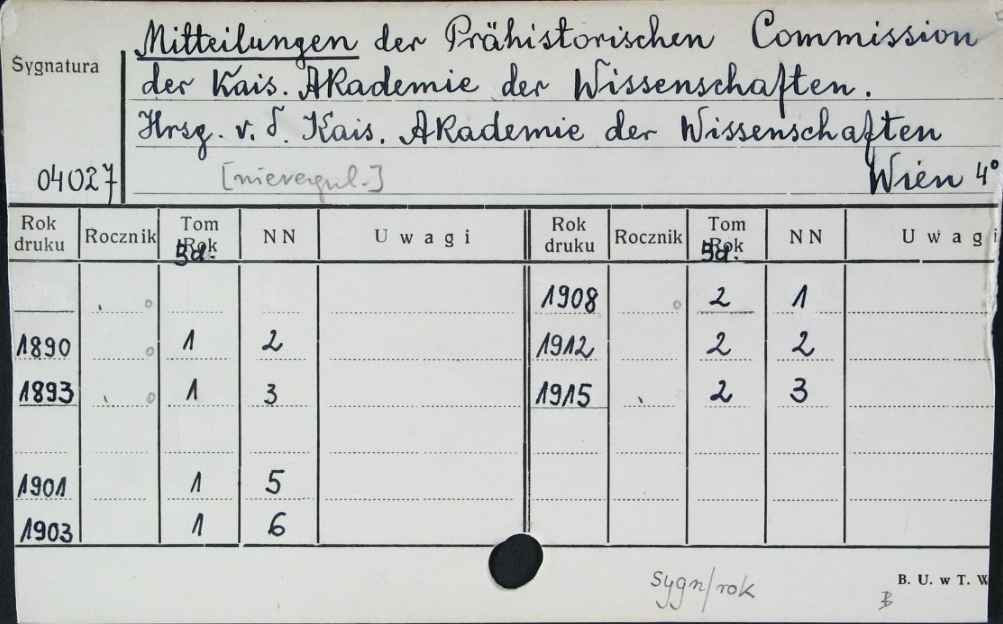 Mitteilungen der Prähistorischen Commission
Sygnatura
der Kais. Akademie der Wissenschaften.
Hrsg. v. d. Kais. Akademie der Wissenschaften
04027 [nieregul.] Wien 4°
Rok druku Rocznik Tom Rok NN Uwagi Rok druku Rocznik Tom Rok NN Uwagi
Bd. Bd.
1908 2 1
1890 1 2 1912 2 2
1893 1 3 1915 2 3
1901 1 5
1903 1 6
sygn/rok
B. U. w T. W
B